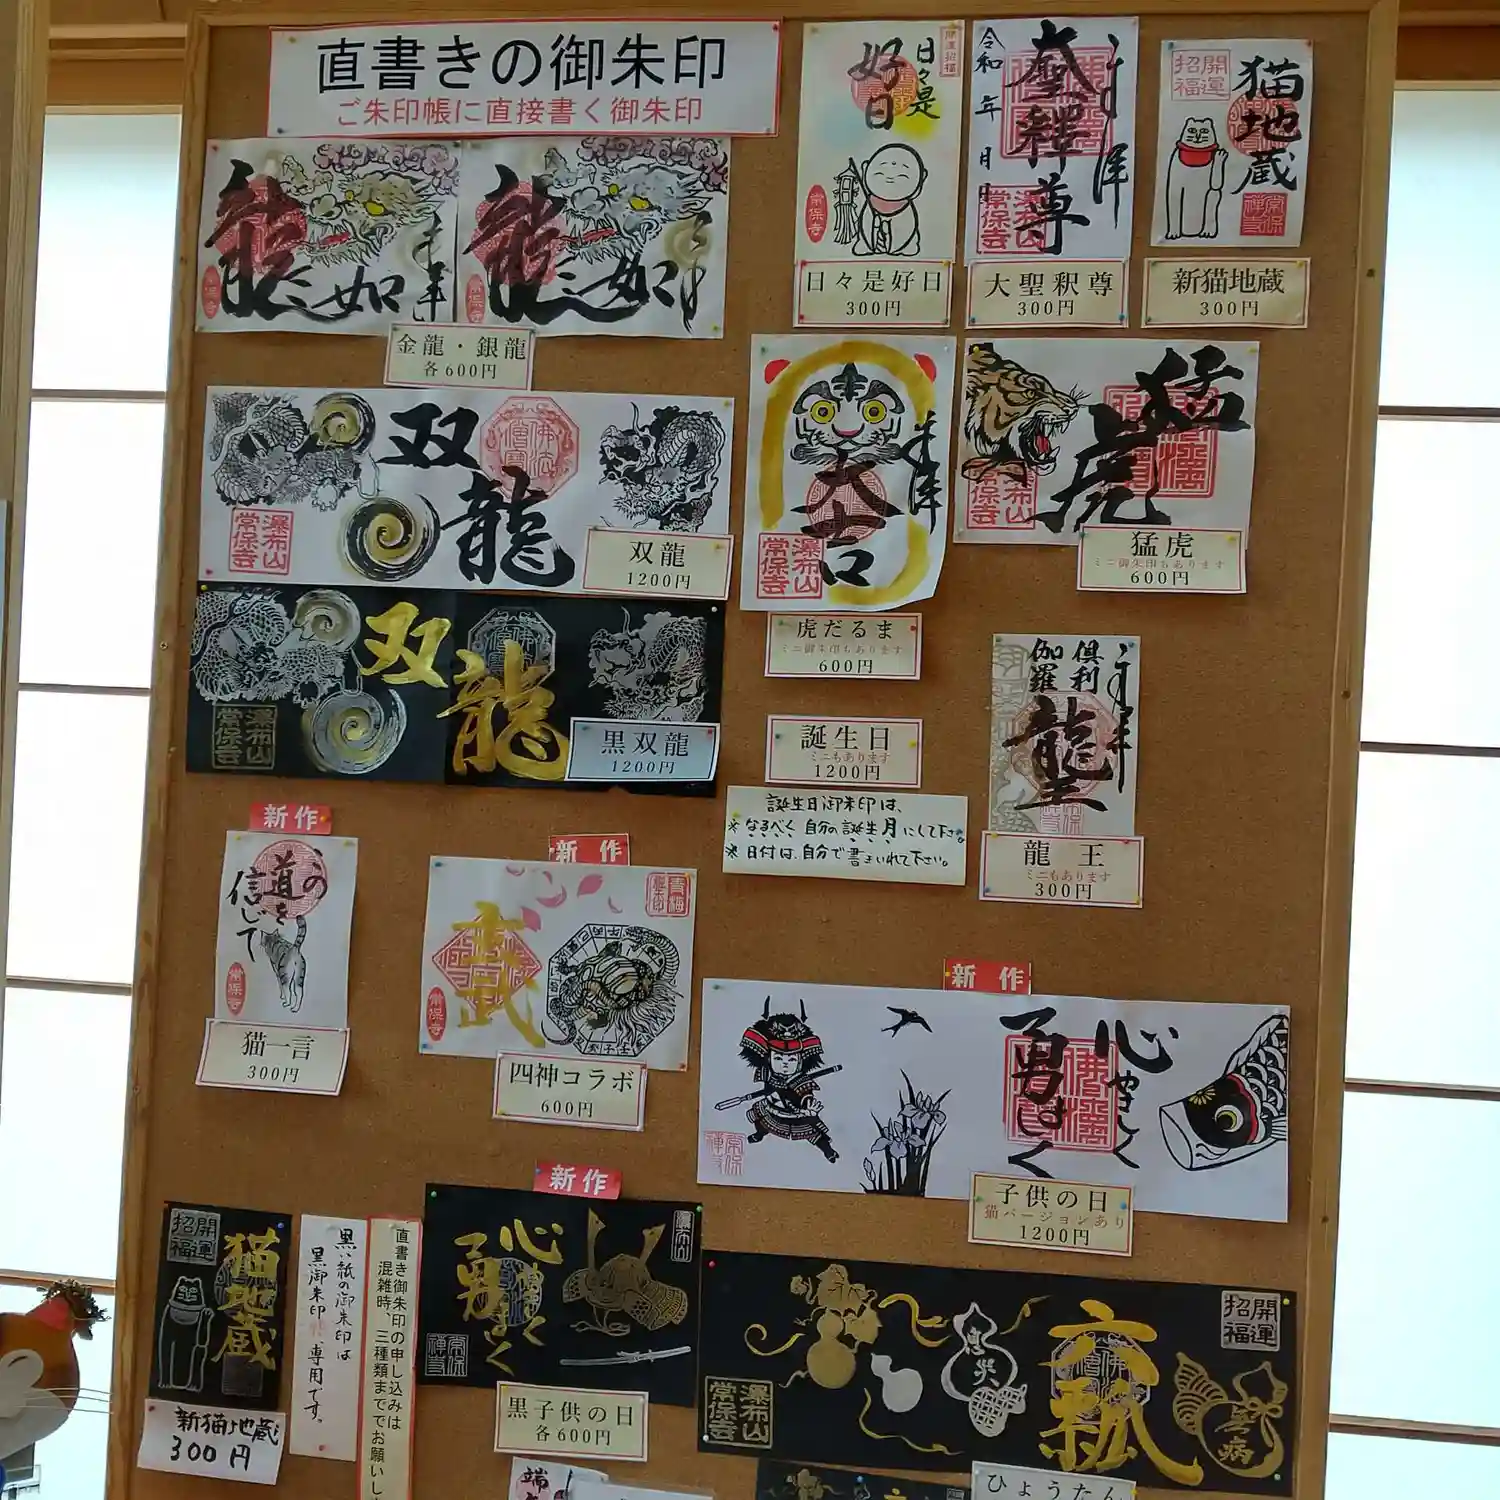 直書きの御朱印
ご朱印帳に直接書く御朱印
龍
如
龍
如
金龍・銀龍
各600円
日々是
好日
開運招福
常保寺
日々是好日
300円
令和 年 月 日
大聖釋尊
瀑布山
常保寺
大聖釈尊
300円
開運
招福
猫地蔵
新猫地蔵
300円
双龍
佛法
僧寶
瀑布山
常保寺
双龍
1200円
双龍
瀑布山
常保寺
黒双龍
1200円
大吉
瀑布山
常保寺
虎だるま
ミニ御朱印もあります
600円
猛虎
瀑布山
常保寺
猛虎
ミニ御朱印もあります
600円
誕生日
ミニもあります
1200円
誕生日御朱印は、
※なるべく自分の誕生月にして下さい。
※日付は、自分で書き入れて下さい。
倶利
伽羅
龍王
龍 王
ミニもあります
300円
新作
この
道を
信じて
常保寺
猫一言
300円
新 作
玄武
常保寺
四神コラボ
600円
新 作
心やさしく
勇ましく
子供の日
猫バージョンあり
1200円
開運
招福
猫地蔵
新猫地蔵
300円
黒い紙の御朱印は
黒御朱印帳専用です。
直書き御朱印の申し込みは
混雑時、三種類まででお願いし
新作
心やさしく
勇ましく
黒子供の日
各600円
開運
招福
六瓢
無病
瀑布山
常保寺
ひょうたん